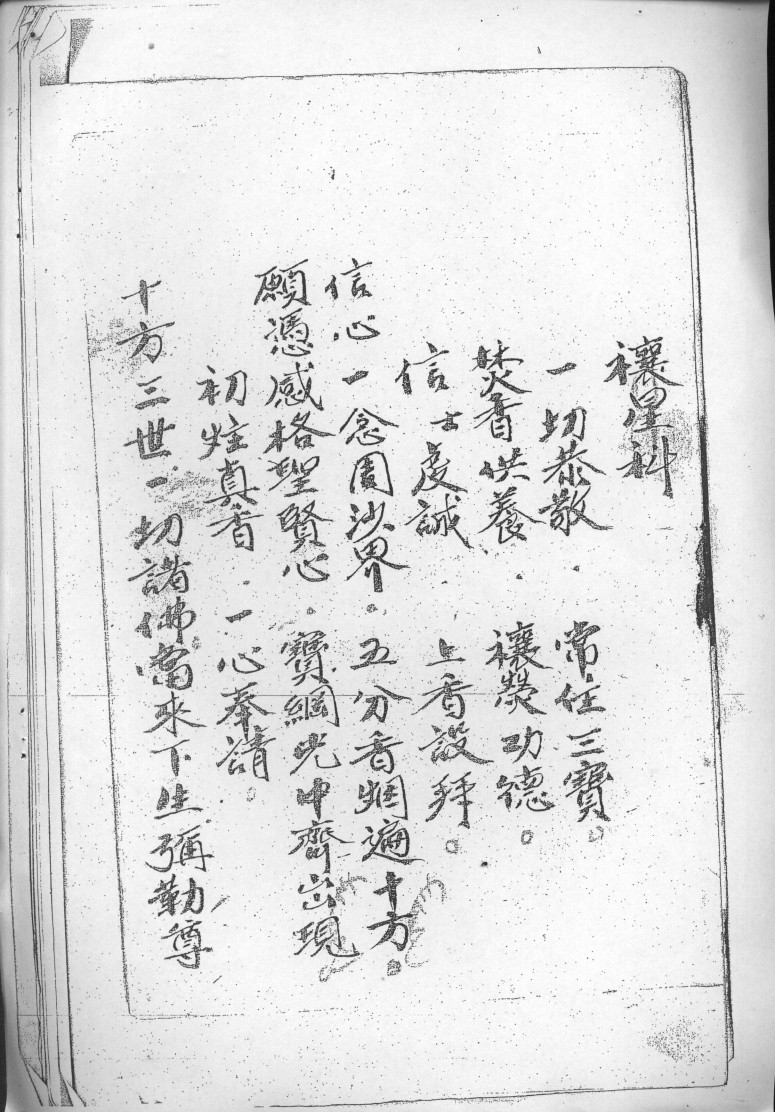 禳星科
一切恭敬．常住三寶。
焚香供養．禳熒功德。
信士虔誠　上香設拜。
信心一念周沙界。五分香烟遍十方。
願憑感格聖賢心。寶網光中齊出現。
初炷真香．一心奉請。
十方三世一切諸佛當來下生彌勒尊